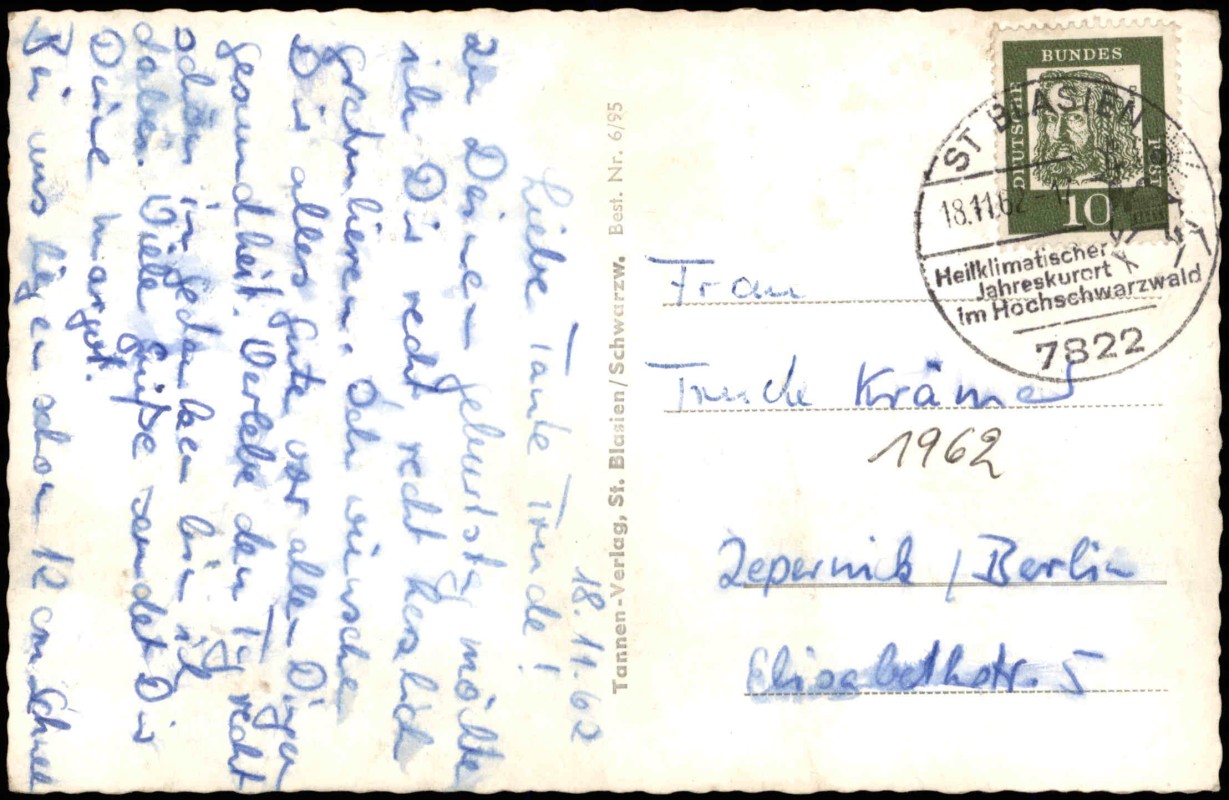 18.11.62
Liebe Tante Trude!
Zu Deinem Geburtstag möchte
ich Dir recht recht herzlich
gratulieren. Ich wünsche
Dir alles Gute vor allen Dingen
Gesundheit. Verlebe den Tag recht
schön in gedanken bin ich
dabei. Viele Grüße sendet Dir
Deine Margot.
Bei uns liegen schon 12 cm Schnee
Tannen-Verlag, St. Blasien/Schwarzw. Best. Nr. 6/95
BUNDES
DEUTSCHE
POST
10
ST BLASIEN
18.11.62
Heilklimatischer
Jahreskurort
im Hochschwarzwald
7822
Frau
Trude Krämer
1962
Zepernick / Berlin
Elisabethstr. 5